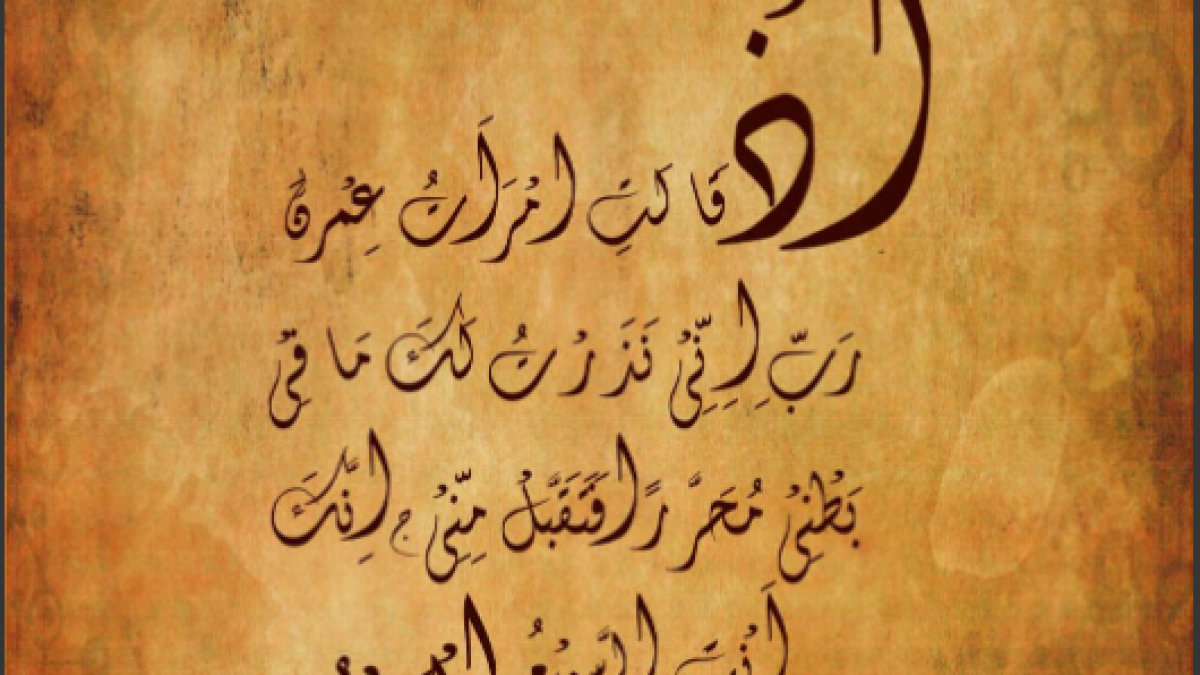 اِذْ قَالَتِ امْرَاَتُ عِمْرٰنَ
رَبِّ اِنِّیْ نَذَرْتُ لَكَ مَا فِیْ
بَطْنِیْ مُحَرَّرًا فَتَقَبَّلْ مِنِّیْ ۚ اِنَّكَ
اَنْتَ السَّمِیْعُ